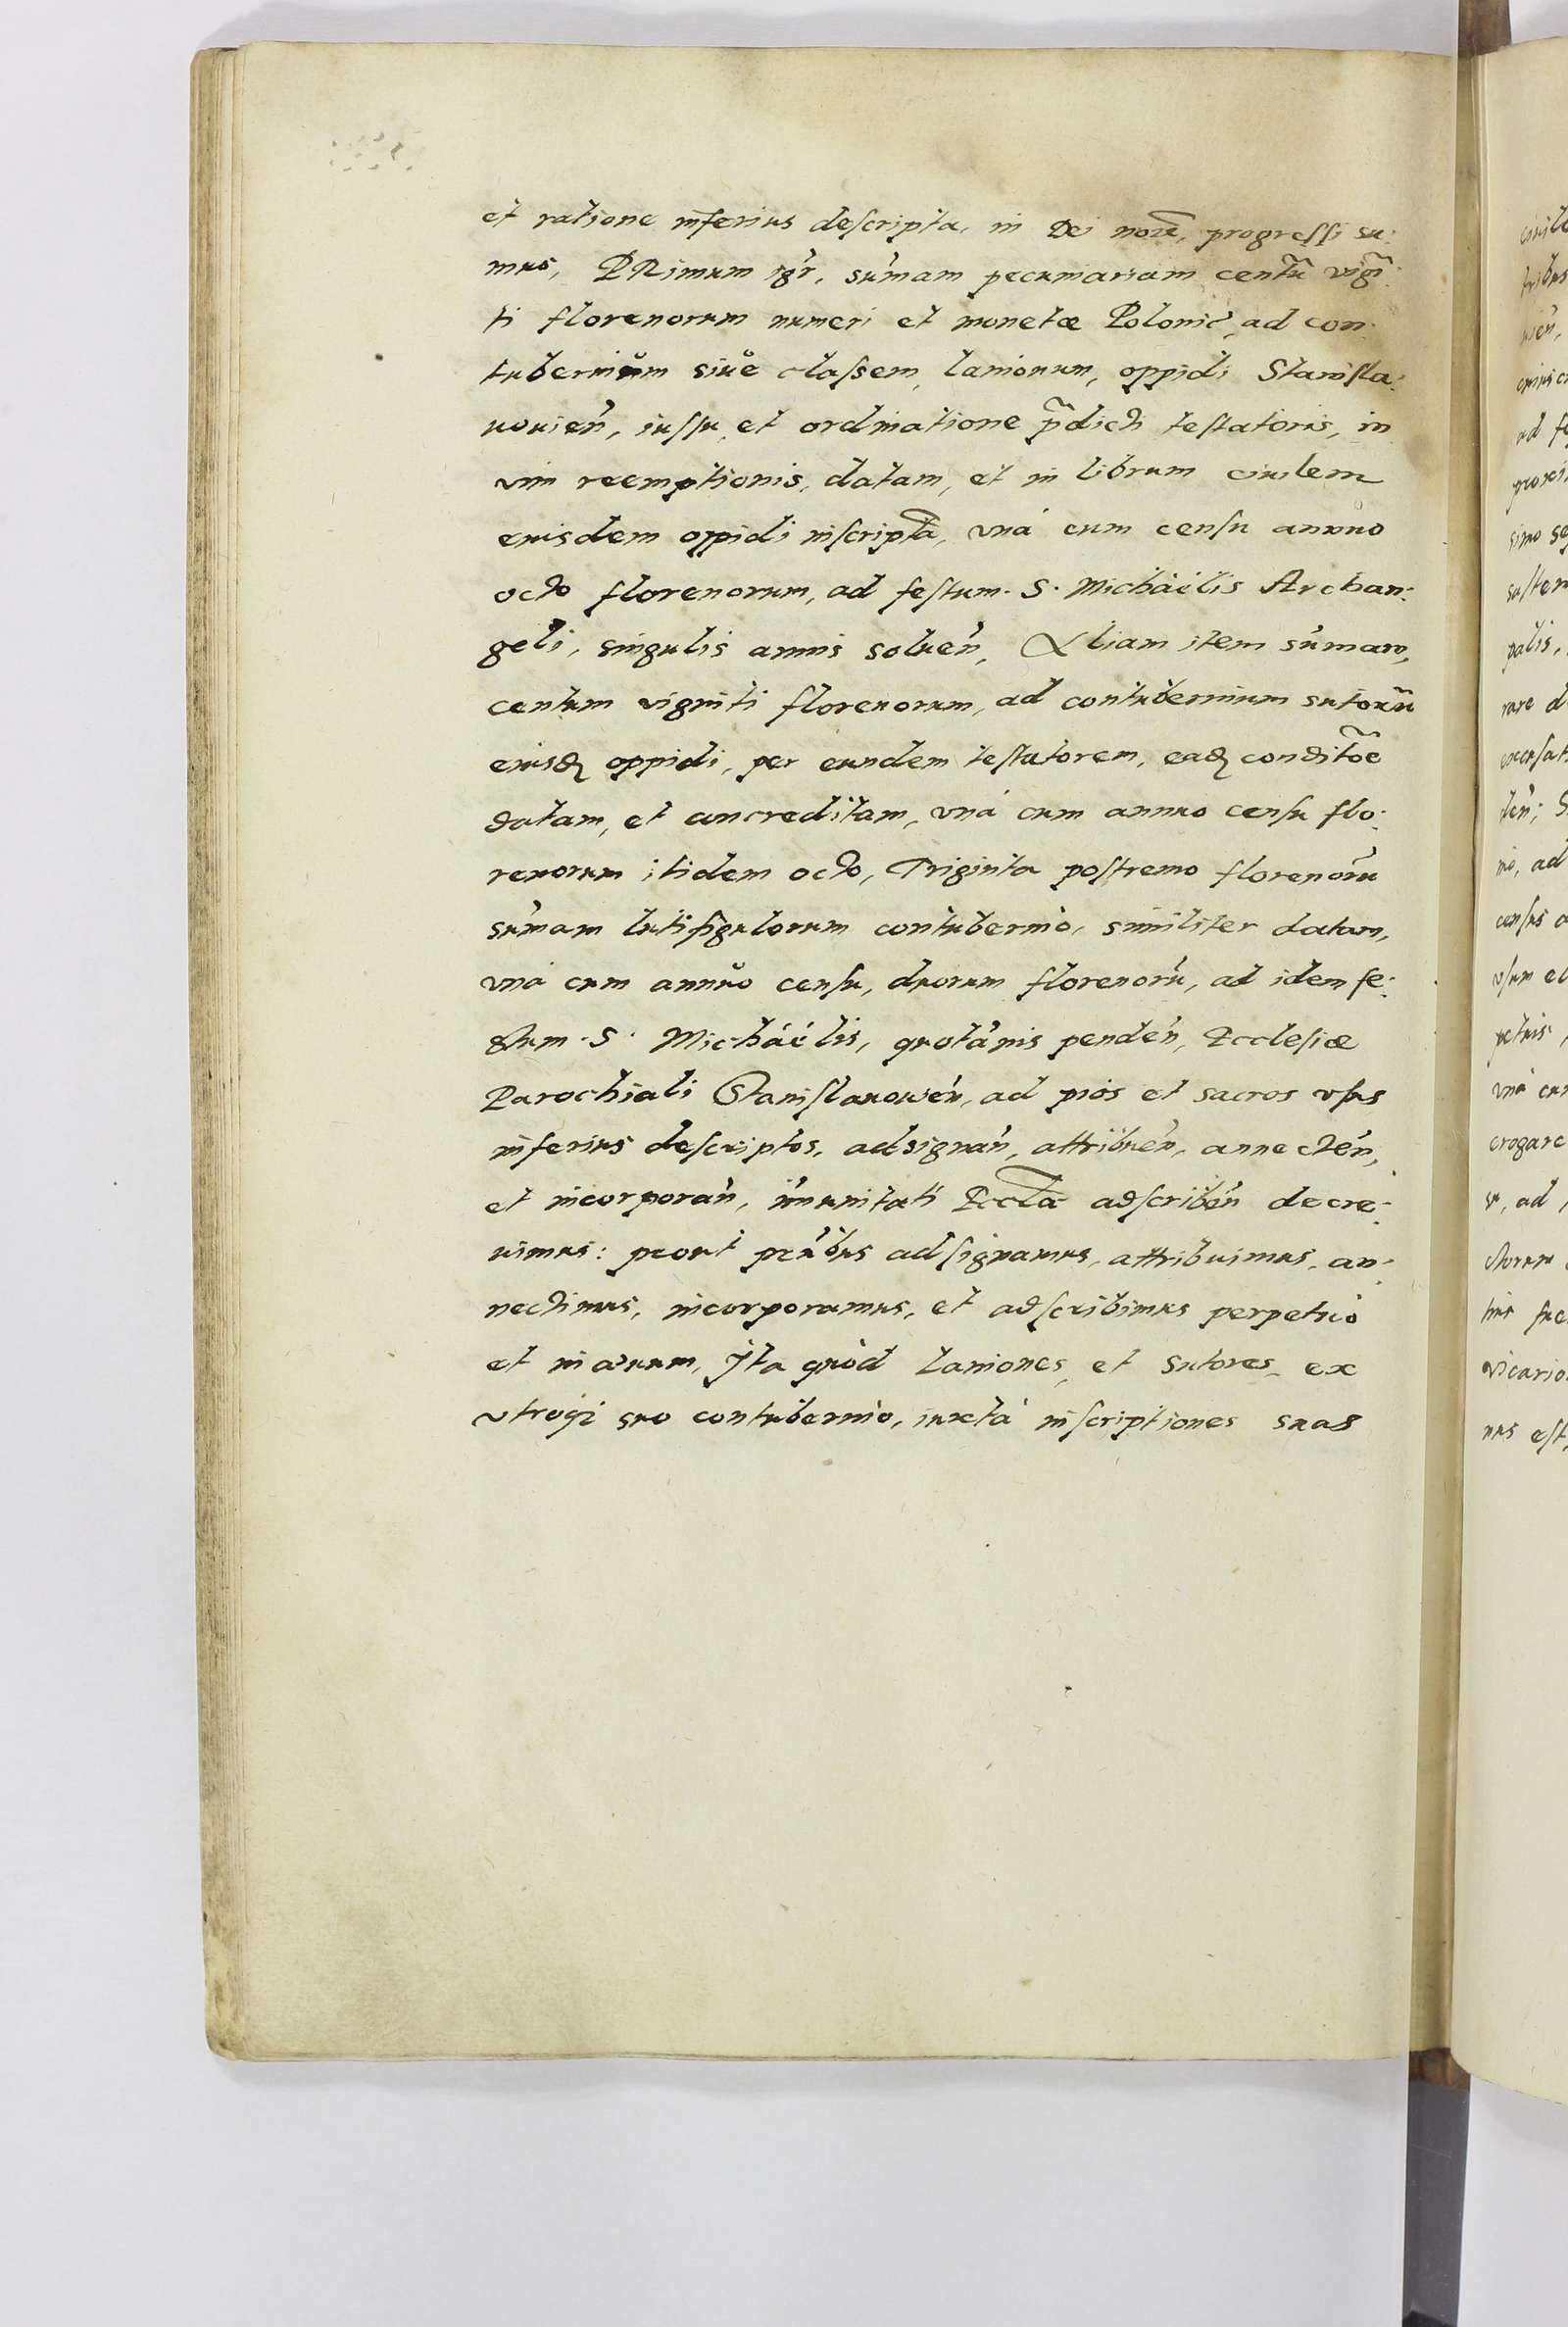 et ratione inferius descripta, in Dei noĩe, progressi su:
mus, PRimum igr̃, sum̃am pecuniariam centũ vigĩ:
ti florenorum numeri et monetæ Polonic̃, ad con:
tubernium siue classem, lanionum, oppidi Stanisla:
uouien̄, iussu et ordinatione p̃dicti testatoris, in
vim reemptionis, datam, et in librum ciuilem
eiusdem oppidi inscriptã, vná cum censu annuo
octo florenorum, ad festum. S. Micháélis Archan:
geli, singulis annis soluen̄, Aliam item sum̃am,
centum viginti florenorum, ad contubernium sutorũ
eiusdꝫ oppidi, per eundem testatorem, eadꝫ conditõe
datam, et concreditam, vná cum annuo censu flo:
renorum itidem octo, Triginta postremo florenorũ
sum̃am lutifigulorum contubernio, similiter datam,
vná cum annuo censu, duorum florenorũ, ad idem fe:
stum. S. Micháélis, quotãnis penden̄, Ecclesiæ
Parochiali Stanislauowien̄, ad pios et sacros vsus
inferius descriptos, adsignan̄, attribuen̄, annecten̄,
et incorporan̄, im̃unitati Eccl̃æ adscriben̄ decre:
uimus: prout pñtibus adsignamus, attribuimus, an:
nectimus, incorporamus, et adscribimus perpetuò
et in æuum, Jta quòd laniones, et sutores, ex
vtroqꝫ suo contubernio, iuxtà inscriptiones suas